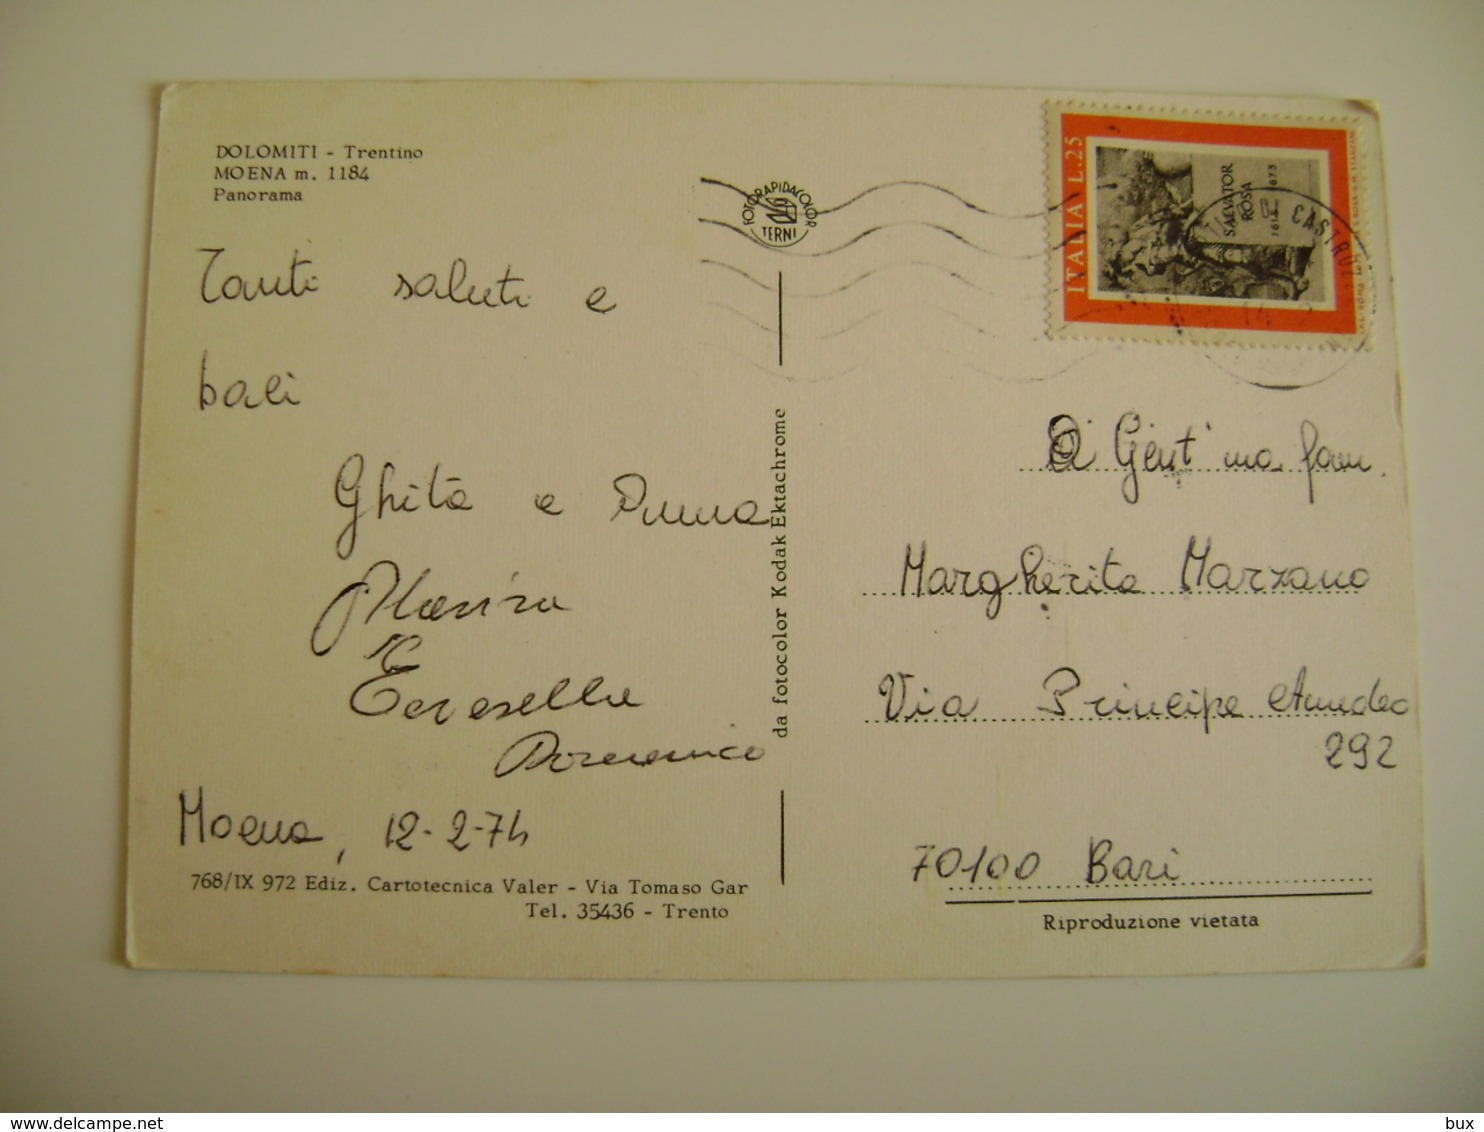 DOLOMITI - Trentino
MOENA m. 1184
Panorama
Tanti saluti e
baci
Ghita e Anna
Marisa
Teresella
Domenico
Moena, 12-2-74
768/IX 972 Ediz. Cartotecnica Valer - Via Tomaso Gar
Tel. 35436 - Trento
FOTORAPIDACOLOR
TERNI
da fotocolor Kodak Ektachrome
ITALIA L.25
SALVATOR
ROSA
1615 1673
CASTRO
Gent'ma fam.
Margherita Marzano
Via Principe Amedeo
292
70100 Bari
Riproduzione vietata
delcampe.net
bux